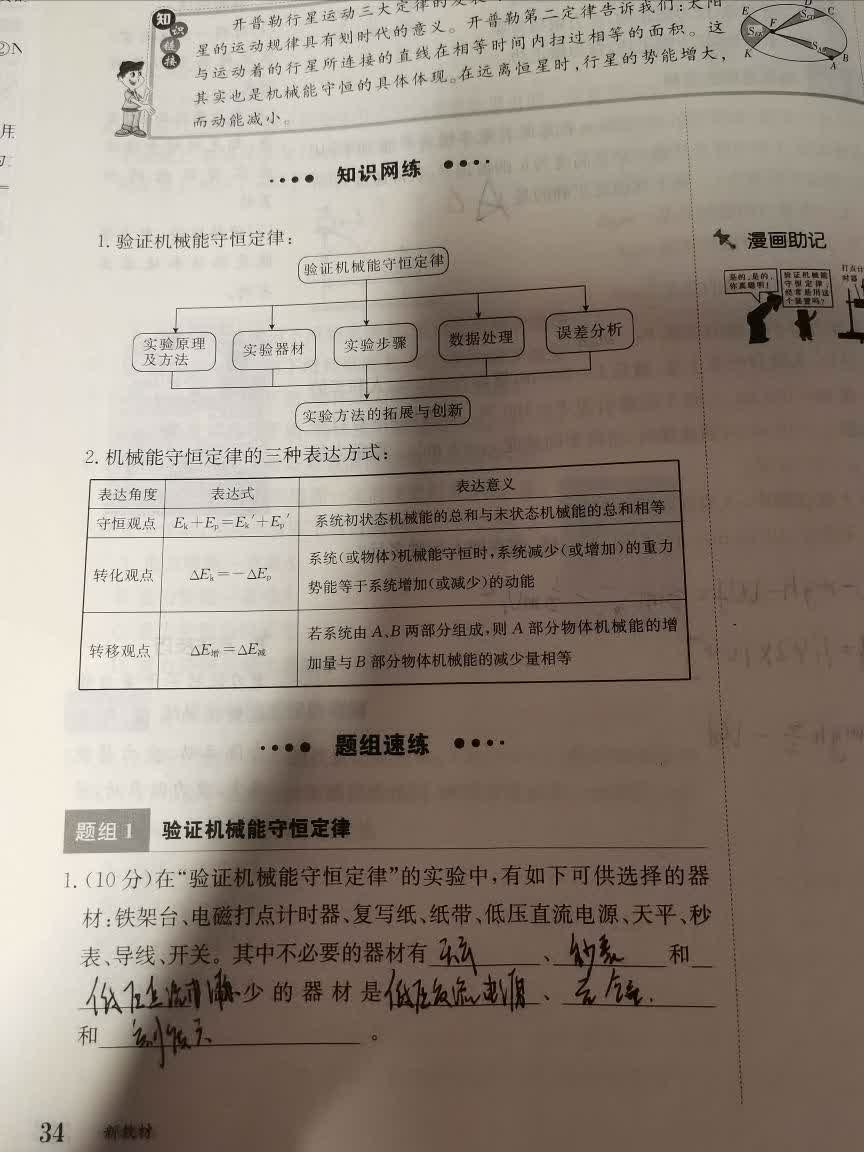 知识链接
开普勒行星运动三大定律的发
星的运动规律具有划时代的意义。开普勒第二定律告诉我们:太阳
与运动着的行星所连接的直线在相等时间内扫过相等的面积。这
其实也是机械能守恒的具体体现。在远离恒星时,行星的势能增大,
而动能减小。
E D C
F
K A B
②N
用
知识网练
1. 验证机械能守恒定律:
验证机械能守恒定律
实验原理及方法 实验器材 实验步骤 数据处理 误差分析
实验方法的拓展与创新
漫画助记
是的,是的,你真聪明!
验证机械能守恒定律,经常是用这个装置吗?
2. 机械能守恒定律的三种表达方式:
表达角度 表达式 表达意义
守恒观点 Eₖ+Eₚ=Eₖ′+Eₚ′ 系统初状态机械能的总和与末状态机械能的总和相等
转化观点 ΔEₖ=-ΔEₚ 系统(或物体)机械能守恒时,系统减少(或增加)的重力
势能等于系统增加(或减少)的动能
转移观点 ΔE增=ΔE减 若系统由 A、B 两部分组成,则 A 部分物体机械能的增
加量与 B 部分物体机械能的减少量相等
题组速练
题组 1 验证机械能守恒定律
1. (10 分)在“验证机械能守恒定律”的实验中,有如下可供选择的器
材:铁架台、电磁打点计时器、复写纸、纸带、低压直流电源、天平、秒
表、导线、开关。其中不必要的器材有 天平 、 秒表 和
低压直流电源 少的器材是 低压交流电源 、 重锤
和 刻度尺 。
34 新教材